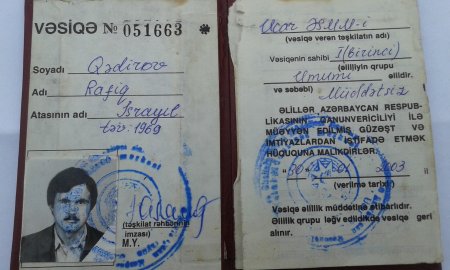 VƏSİQƏ № 051663
Soyadı Qədirov
Adı Rafiq
Atasının adı İsrayıl
təv: 1969
(təşkilat rəhbərinin
imzası)
M.Y.
(vəsiqə verən təşkilatın adı)
Vəsiqənin sahibi I (Birinci)
(əlilliyin qrupu
Ümumi əlildir.
və səbəbi) Müddətsiz
ƏLİLLƏR AZƏRBAYCAN RESPUB-
LİKASININ QANUNVERİCİLİYİ İLƏ
MÜƏYYƏN EDİLMİŞ GÜZƏŞT VƏ
İMTİYAZLARDAN İSTİFADƏ ETMƏK
HÜQUQUNA MALİKDİRLƏR.
2003 il
(verilmə tarixi)
Vəsiqə əlillik müddətinə etibarlıdır.
Əlillik qrupu ləğv edildikdə vəsiqə geri
alınır.